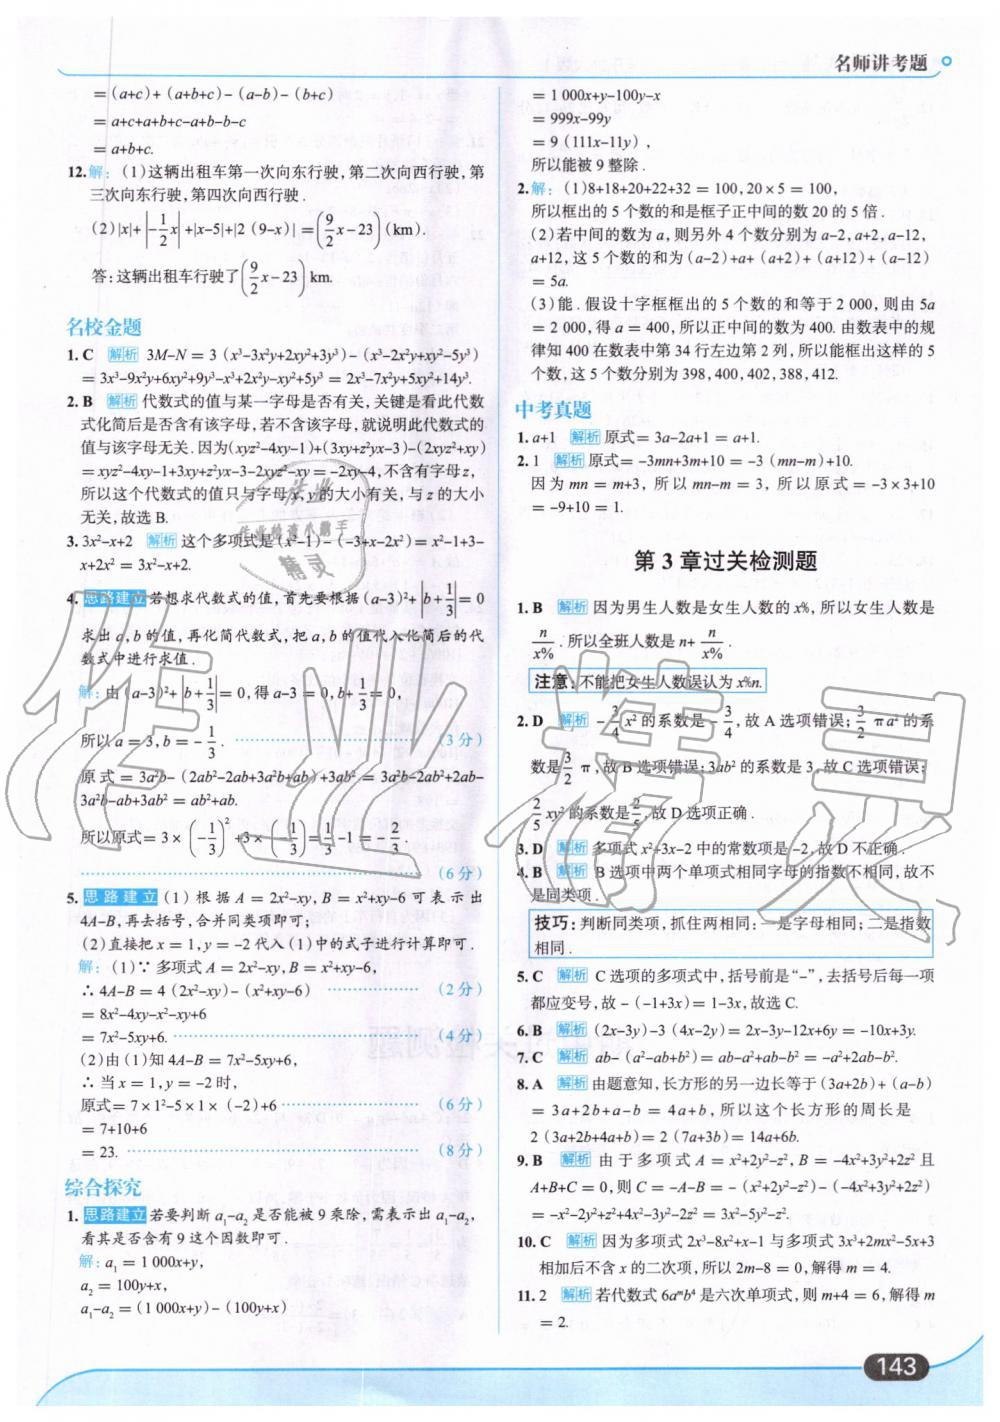 名师讲考题
= (a+c) + (a+b+c) - (a-b) - (b+c)
= a+c+a+b+c-a+b-b-c
= a+b+c.
12.解: (1)这辆出租车第一次向东行驶,第二次向西行驶,第
三次向东行驶,第四次向西行驶.
(2)|x|+|-1/2 x|+|x-5|+|2 (9-x)| = (9/2 x-23) (km).
答:这辆出租车行驶了(9/2 x-23) km.
名校金题
1. C 解析 3M-N = 3 (x³-3x²y+2xy²+3y³)- (x³-2x²y+xy²-5y³)
= 3x³-9x²y+6xy²+9y³-x³+2x²y-xy²+5y³ = 2x³-7x²y+5xy²+14y³.
2. B 解析 代数式的值与某一字母是否有关,关键是看此代数
式化简后是否含有该字母,若不含该字母,就说明此代数式的
值与该字母无关. 因为(xyz²-4xy-1)+(3xy+z²yx-3)-(2xyz²+xy)
= xyz²-4xy-1+3xy+z²yx-3-2xyz²-xy = -2xy-4,不含有字母z,
所以这个代数式的值只与字母x,y的大小有关,与z的大小
无关,故选 B.
3. 3x²-x+2 解析 这个多项式是 (x²-1)-(-3+x-2x²) = x²-1+3-
x+2x² = 3x²-x+2.
4. 思路建立 若想求代数式的值,首先要根据 (a-3)²+|b+1/3|=0
求出a,b的值,再化简代数式,把a,b的值代入化简后的代
数式中进行求值.
解:由 (a-3)²+|b+1/3|=0,得 a-3 = 0,b+1/3 = 0,
所以 a = 3,b = -1/3. (3 分)
原式 = 3a²b- (2ab²-2ab+3a²b+ab) +3ab² = 3a²b-2ab²+2ab-
3a²b-ab+3ab² = ab²+ab.
所以原式= 3× (-1/3)² +3× (-1/3) = 1/3 -1 = -2/3.
(6 分)
5. 思路建立 (1) 根据 A = 2x²-xy, B = x²+xy-6 可表示出
4A-B,再去括号,合并同类项即可;
(2)直接把 x = 1,y = -2 代入(1)中的式子进行计算即可.
解: (1)∵ 多项式 A = 2x²-xy,B = x²+xy-6,
∴ 4A-B = 4 (2x²-xy)- (x²+xy-6) (2 分)
= 8x²-4xy-x²-xy+6
= 7x²-5xy+6. (4 分)
(2)由(1)知 4A-B = 7x²-5xy+6,
∴ 当 x = 1,y = -2 时,
原式= 7×1²-5×1× (-2)+6 (6 分)
= 7+10+6
= 23. (8 分)
综合探究
1. 思路建立 若要判断 a₁-a₂ 是否能被9乘除,需表示出 a₁-a₂,
看其是否含有9这个因数即可.
解: a₁ = 1 000x+y,
a₂ = 100y+x,
a₁-a₂ = (1 000x+y) - (100y+x)
= 1 000x+y-100y-x
= 999x-99y
= 9 (111x-11y) ,
所以能被 9 整除.
2.解: (1)8+18+20+22+32 = 100,20×5 = 100,
所以框出的 5 个数的和是框子正中间的数 20 的 5 倍.
(2)若中间的数为 a,则另外 4 个数分别为 a-2,a+2,a-12,
a+12,这 5 个数的和为 (a-2)+a+ (a+2) + (a+12) + (a-12)
= 5a.
(3)能. 假设十字框框出的 5 个数的和等于 2 000,则由 5a
= 2 000,得 a = 400,所以正中间的数为 400. 由数表中的规
律知 400 在数表中第 34 行左边第 2 列,所以能框出这样的 5
个数,这 5 个数分别为 398,400,402,388,412.
中考真题
1. a+1 解析 原式= 3a-2a+1 = a+1.
2. 1 解析 原式= -3mn+3m+10 = -3 (mn-m)+10.
因为 mn = m+3, 所以 mn-m = 3, 所以原式= -3×3+10
= -9+10 = 1.
第 3 章过关检测题
1. B 解析 因为男生人数是女生人数的 x%,所以女生人数是
n/x% . 所以全班人数是 n+ n/x% .
注意:不能把女生人数误认为 x%n.
2. D 解析 -3/4 x² 的系数是 -3/4,故 A 选项错误; 3/2 πa² 的系
数是 3/2 π,故 B 选项错误;3ab² 的系数是 3,故 C 选项错误;
2/5 xy² 的系数是 2/5,故 D 选项正确.
3. D 解析 多项式 x²+3x-2 中的常数项是 -2,故 D 不正确.
4. B 解析 B 选项中两个单项式相同字母的指数不相同,故不
是同类项.
技巧:判断同类项,抓住两相同:一是字母相同;二是指数
相同.
5. C 解析 C 选项的多项式中,括号前是“-”,去括号后每一项
都应变号,故 - (-1+3x) = 1-3x,故选 C.
6. B 解析 (2x-3y)-3 (4x-2y) = 2x-3y-12x+6y = -10x+3y.
7. C 解析 ab- (a²-ab+b²) = ab-a²+ab-b² = -a²+2ab-b².
8. A 解析 由题意知,长方形的另一边长等于 (3a+2b)+ (a-b)
= 3a+2b+a-b = 4a+b, 所以这个长方形的周长是
2 (3a+2b+4a+b) = 2 (7a+3b) = 14a+6b.
9. B 解析 由于多项式 A = x²+2y²-z²,B = -4x²+3y²+2z² 且
A+B+C = 0,则 C = -A-B = - (x²+2y²-z²) - (-4x²+3y²+2z²)
= -x²-2y²+z²+4x²-3y²-2z² = 3x²-5y²-z².
10. C 解析 因为多项式 2x³-8x²+x-1 与多项式 3x³+2mx²-5x+3
相加后不含 x 的二次项,所以 2m-8 = 0,解得 m = 4.
11. 2 解析 若代数式 6aᵐb⁴ 是六次单项式,则 m+4 = 6,解得 m
= 2.
143
作业精灵